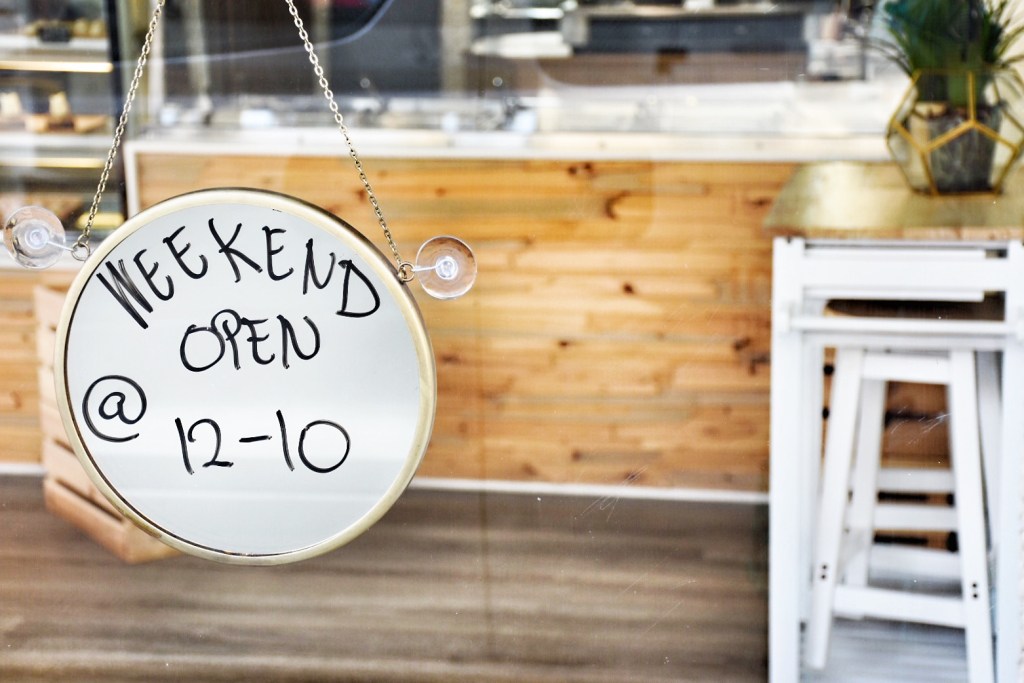 WEEKEND
OPEN
@
12-10